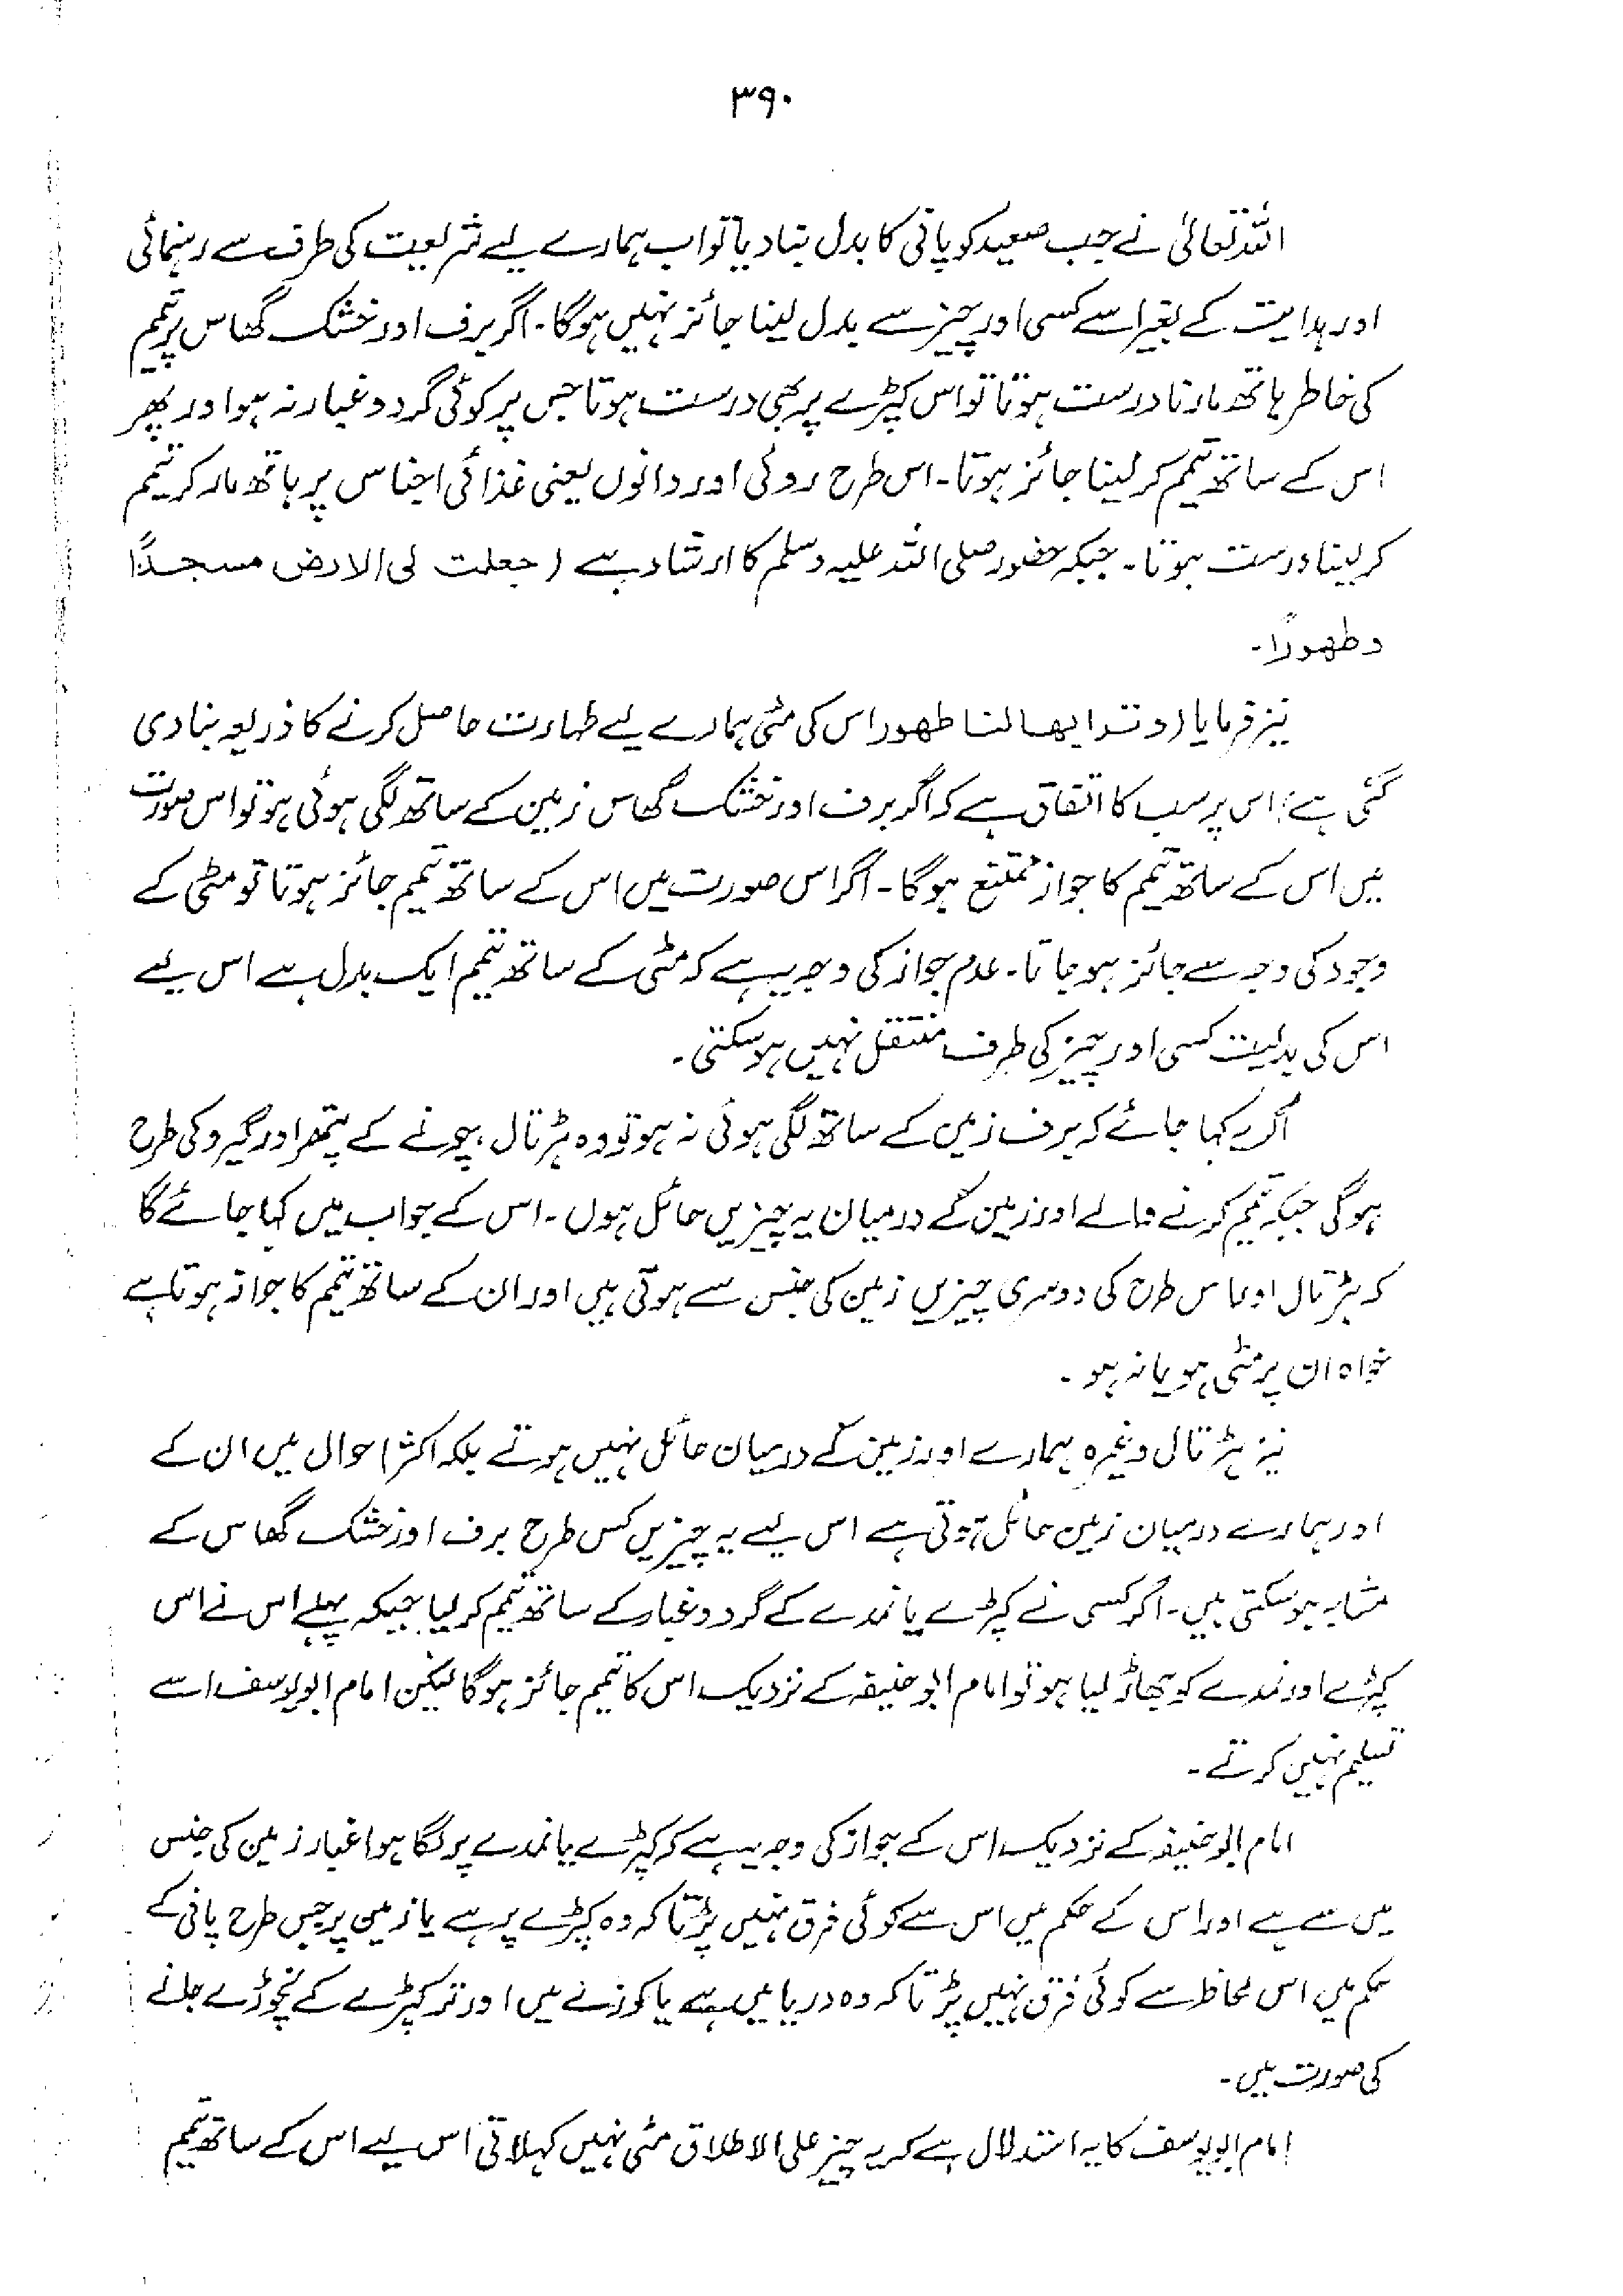 ۳۹۰
اللہ تعالیٰ نے جب صعید کو پانی کا بدل بنا دیا تو اب ہمارے لیے شریعت کی طرف سے رہنمائی
اور ہدایت کے بغیر اسے کسی اور چیز سے بدل لینا جائز نہیں ہوگا۔ اگر برف اور خشک گھاس پر تیمم
کی خاطر ہاتھ مارنا درست ہوتا تو اس کپڑے پر بھی درست ہوتا جس پر کوئی گرد و غبار نہ ہو اور پھر
اس کے ساتھ تیمم کر لینا جائز ہوتا۔ اس طرح روئی اور دانوں یعنی غذائی اجناس پر ہاتھ مار کر تیمم
کر لینا درست ہوتا۔ جبکہ حضور صلی اللہ علیہ وسلم کا ارشاد ہے (جعلت لی الارض مسجدًا
وطھورًا۔
نیز فرمایا (وترابھا لنا طھور اس کی مٹی ہمارے لیے طہارت حاصل کرنے کا ذریعہ بنا دی
گئی ہے؛ اس پر سب کا اتفاق ہے کہ اگر برف اور خشک گھاس زمین کے ساتھ لگی ہوئی ہو تو اس صورت
میں اس کے ساتھ تیمم کا جواز ممتنع ہوگا۔ اگر اس صورت میں اس کے ساتھ تیمم جائز ہوتا تو مٹی کے
وجود کی وجہ سے جائز ہو جاتا۔ عدم جواز کی وجہ یہ ہے کہ مٹی کے ساتھ تیمم ایک بدل ہے اس لیے
اس کی بدلیت کسی اور چیز کی طرف منتقل نہیں ہو سکتی۔
اگر یہ کہا جائے کہ برف زمین کے ساتھ لگی ہوئی نہ ہو تو وہ ہڑتال، چونے کے پتھر اور گیرو کی طرح
ہوگی جبکہ تیمم کرنے والے اور زمین کے درمیان یہ چیزیں حائل ہوں۔ اس کے جواب میں کہا جائے گا
کہ ہڑتال اور اس طرح کی دوسری چیزیں زمین کی جنس سے ہوتی ہیں اور ان کے ساتھ تیمم کا جواز ہوتا ہے
خواہ ان پر مٹی ہو یا نہ ہو۔
نیز ہڑتال وغیرہ ہمارے اور زمین کے درمیان حائل نہیں ہوتے بلکہ اکثر احوال میں ان کے
اور ہمارے درمیان زمین حائل ہوتی ہے اس لیے یہ چیزیں کس طرح برف اور خشک گھاس کے
مشابہ ہو سکتی ہیں۔ اگر کسی نے کپڑے یا نمدے کے گرد و غبار کے ساتھ تیمم کر لیا جبکہ پہلے اس نے اس
کپڑے اور نمدے کو جھاڑ لیا ہو تو امام ابوحنیفہ کے نزدیک اس کا تیمم جائز ہوگا لیکن امام ابویوسف اسے
تسلیم نہیں کرتے۔
امام ابوحنیفہ کے نزدیک اس کے جواز کی وجہ یہ ہے کہ کپڑے یا نمدے پر لگا ہوا غبار زمین کی جنس
میں سے ہے اور اس کے حکم میں اس سے کوئی فرق نہیں پڑتا کہ وہ کپڑے پر ہے یا زمین پر جس طرح پانی کے
حکم میں اس لحاظ سے کوئی فرق نہیں پڑتا کہ وہ دریا میں ہے یا کوزے میں اور تر کپڑے کے نچوڑے جانے
کی صورت میں۔
امام ابویوسف کا یہ استدلال ہے کہ یہ چیز علی الاطلاق مٹی نہیں کہلاتی اس لیے اس کے ساتھ تیمم